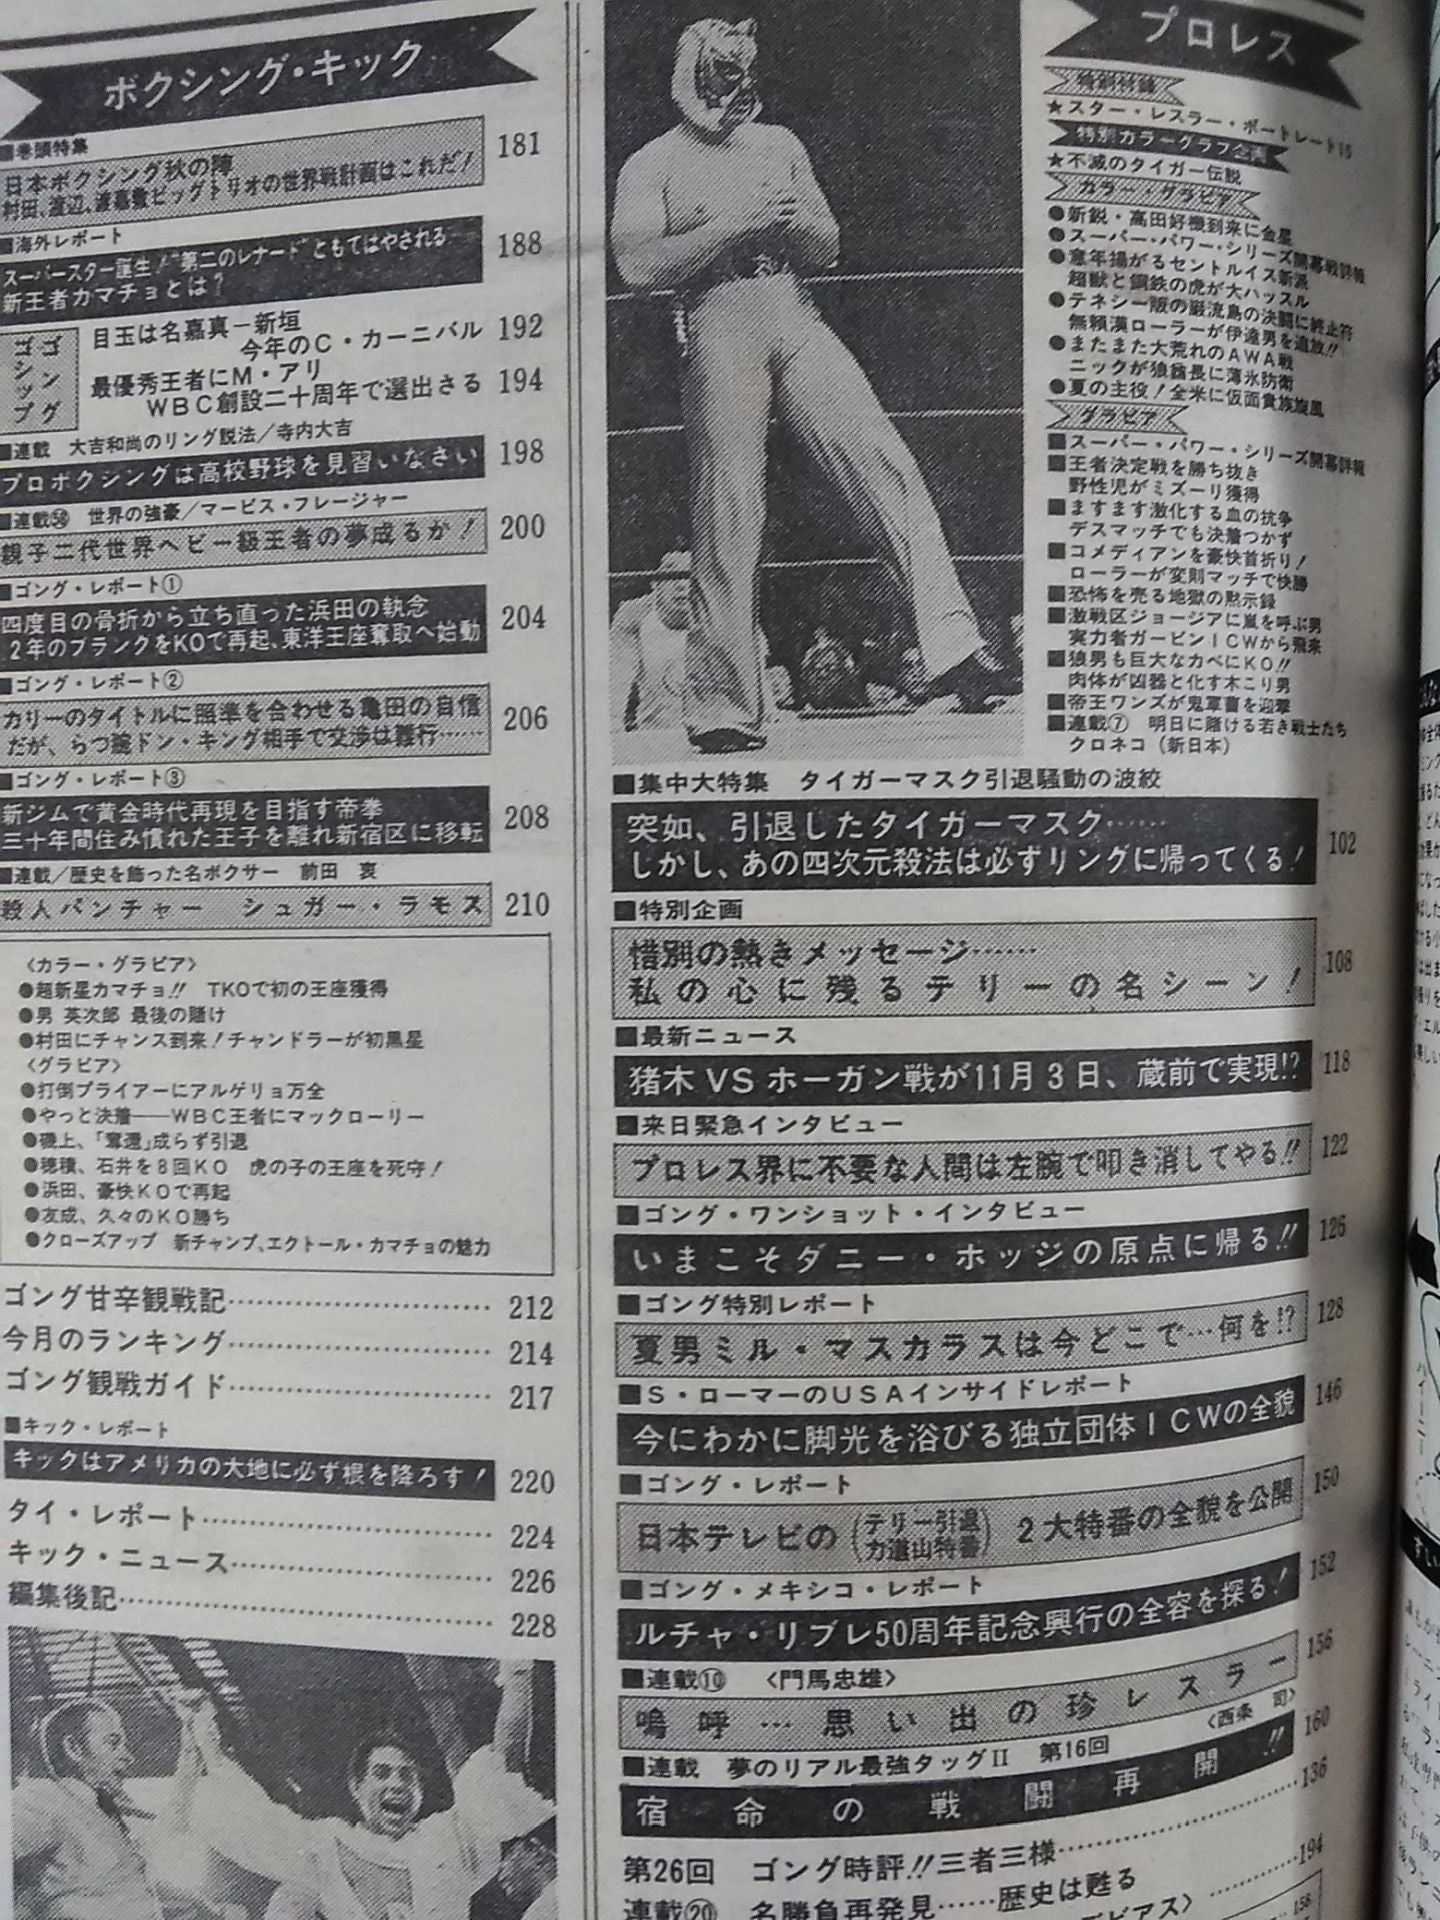 ボクシング・キック
■巻頭特集
日本ボクシング秋の陣
村田、渡辺、渡嘉敷ビッグトリオの世界戦計画はこれだ!
181
■海外レポート
スーパースター誕生!“第二のレナード”ともてはやされる…
新王者カマチョとは?
188
ゴング
ゴシップ
目玉は名嘉真ー新垣
今年のC・カーニバル
192
最優秀王者にM・アリ
WBC創設二十周年で選出さる
194
■連載 大吉和尚のリング説法/寺内大吉
プロボクシングは高校野球を見習いなさい
198
■連載㊿ 世界の強豪/マービス・フレージャー
親子二代世界ヘビー級王者の夢成るか!
200
■ゴング・レポート①
四度目の骨折から立ち直った浜田の執念
2年のブランクをKOで再起、東洋王座奪取へ始動
204
■ゴング・レポート②
カリーのタイトルに照準を合わせる亀田の自信
だが、らつ腕ドン・キング相手で交渉は難行……
206
■ゴング・レポート③
新ジムで黄金時代再現を目指す帝拳
三十年間住み慣れた王子を離れ新宿区に移転
208
■連載/歴史を飾った名ボクサー 前田 衷
殺人パンチャー シュガー・ラモス
210
〈カラー・グラビア〉
●超新星カマチョ!! TKOで初の王座獲得
●男 英次郎 最後の賭け
●村田にチャンス到来!チャンドラーが初黒星
〈グラビア〉
●打倒プライアーにアルゲリョ万全
●やっと決着──WBC王者にマックローリー
●磯上、「奪還」成らず引退
●穂積、石井を8回KO 虎の子の王座を死守!
●浜田、豪快KOで再起
●友成、久々のKO勝ち
●クローズアップ 新チャンプ、エクトール・カマチョの魅力
ゴング甘辛観戦記…………………… 212
今月のランキング…………………… 214
ゴング観戦ガイド…………………… 217
■キック・レポート
キックはアメリカの大地に必ず根を降ろす!
220
タイ・レポート…………………… 224
キック・ニュース…………………… 226
編集後記…………………… 228
プロレス
特別付録
★スター・レスラー・ポートレート
特別カラーグラフ企画
★不滅のタイガー伝説
カラー・グラビア
●新鋭・高田好機到来に金星
●スーパー・パワー・シリーズ開幕戦詳報
●意年揚がるセントルイス新派
超獣と鋼鉄の虎が大ハッスル
●テネシー版の巌流島の決闘に終止符
無頼漢ローラーが伊達男を追放!!
●またまた大荒れのAWA戦
ニックが狼酋長に薄氷防衛
●夏の主役!全米に仮面貴族旋風
グラビア
■スーパー・パワー・シリーズ開幕詳報
■王者決定戦を勝ち抜き
野性児がミズーリ獲得
■ますます激化する血の抗争
デスマッチでも決着つかず
■コメディアンを豪快首折り!
ローラーが変則マッチで快勝
■恐怖を売る地獄の黙示録
■激戦区ジョージアに嵐を呼ぶ男
実力者ガービンICWから飛来
■狼男も巨大なカベにKO!!
肉体が凶器と化す木こり男
■帝王ワンズが鬼軍曹を迎撃
■連載⑦ 明日に賭ける若き戦士たち
クロネコ(新日本)
■集中大特集 タイガーマスク引退騒動の波紋
突如、引退したタイガーマスク……
しかし、あの四次元殺法は必ずリングに帰ってくる!
102
■特別企画
惜別の熱きメッセージ……
私の心に残るテリーの名シーン!
108
■最新ニュース
猪木VSホーガン戦が11月3日、蔵前で実現!?
118
■来日緊急インタビュー
プロレス界に不要な人間は左腕で叩き消してやる!!
122
■ゴング・ワンショット・インタビュー
いまこそダニー・ホッジの原点に帰る!!
126
■ゴング特別レポート
夏男ミル・マスカラスは今どこで…何を!?
128
■S・ローマーのUSAインサイドレポート
今にわかに脚光を浴びる独立団体ICWの全貌
146
■ゴング・レポート
日本テレビの(テリー引退 力道山特番)2大特番の全貌を公開
150
■ゴング・メキシコ・レポート
ルチャ・リブレ50周年記念興行の全容を探る!
152
■連載⑩ 〈門馬忠雄〉
嗚呼…思い出の珍レスラー
156
■連載 夢のリアル最強タッグII 第16回 〈西条 司〉
宿命の戦闘再開!!
160
第26回 ゴング時評!!三者三様…………………… 136
連載⑳ 名勝負再発見……歴史は甦る
194